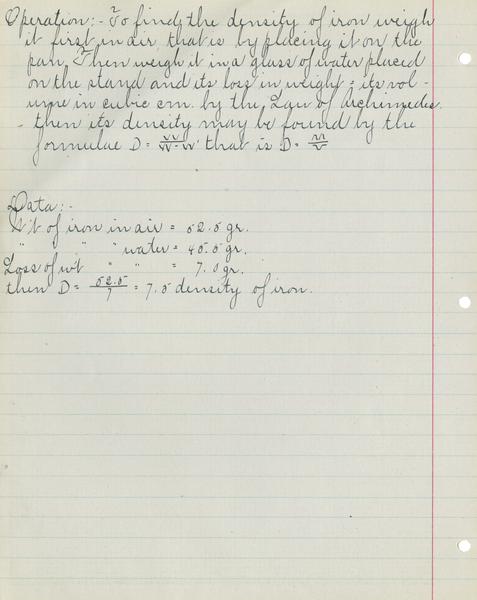 Operation:- To find the density of iron weigh
it first in air, that is by placing it on the
pan. Then weigh it in a glass of water placed
on the stand and its loss in weight = its vol-
ume in cubic cm. by the Law of Archimedes.
- then its density may be found by the
formulae D = W/W-W' that is D = M/V
Data:-
Wt of iron in air = 52.5 gr.
" " " water = 45.5 gr.
Loss of wt " " = 7.0 gr.
then D = 52.5/7 = 7.5 density of iron.